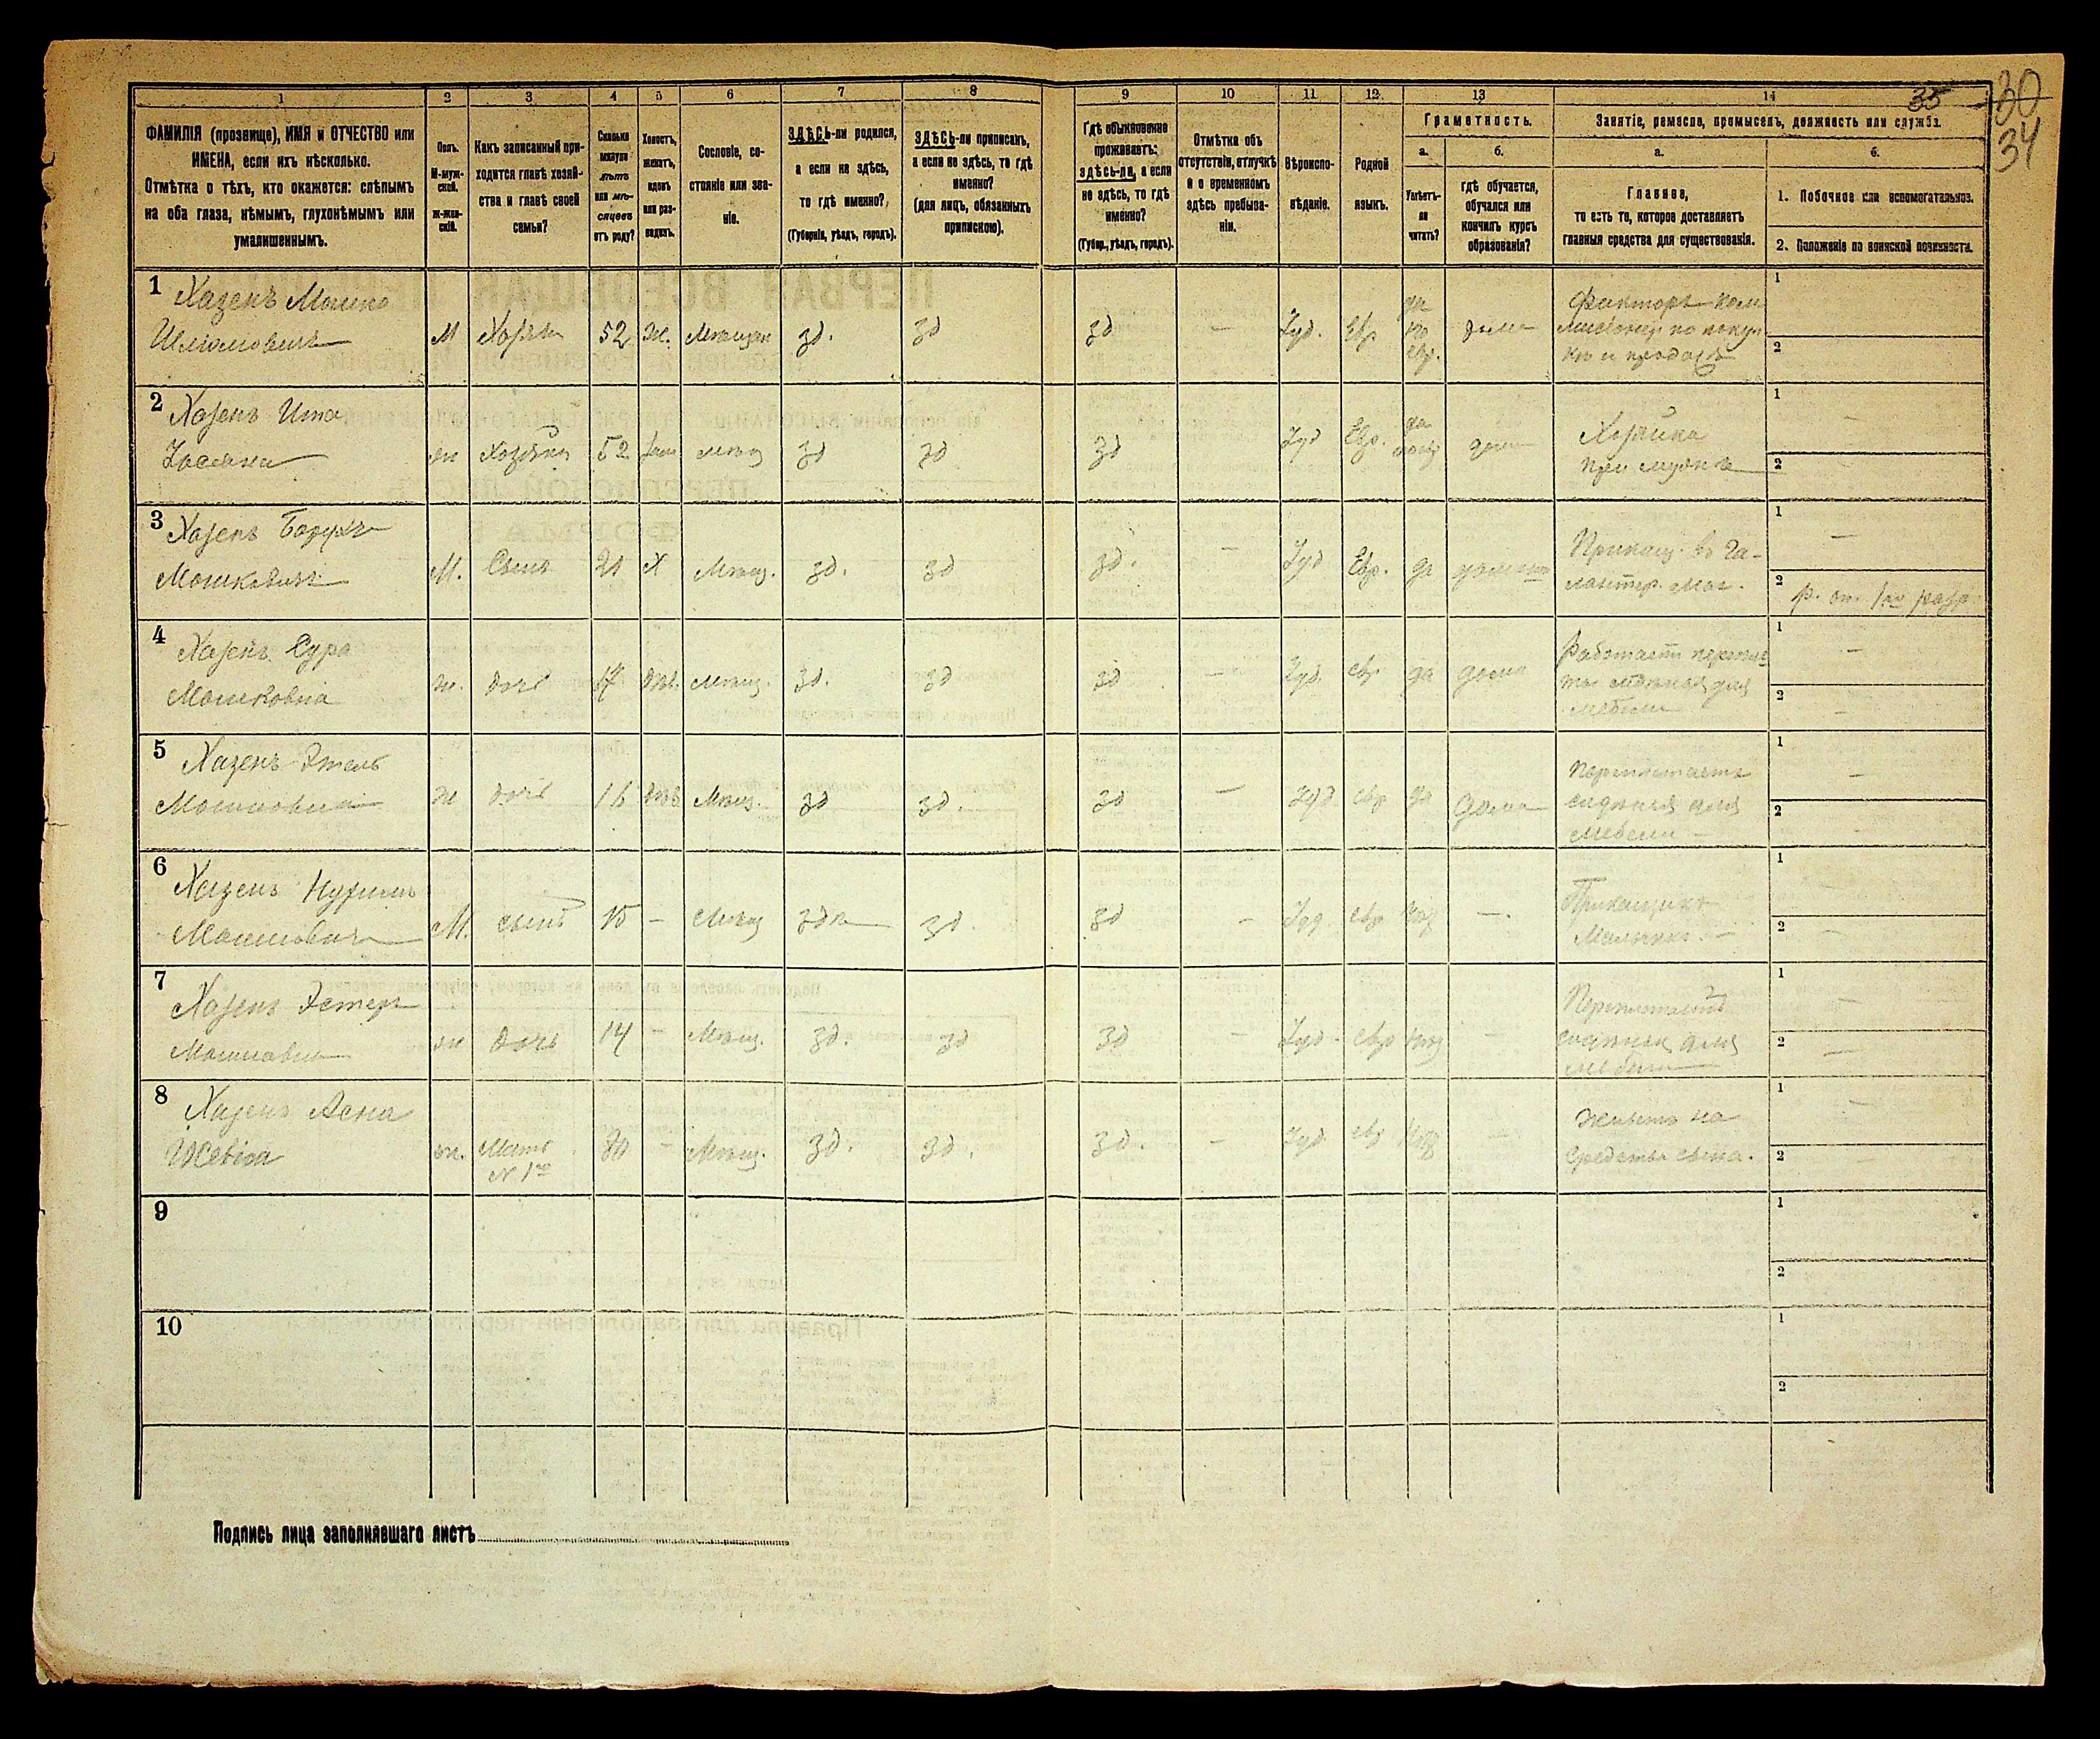 35
30
34
1
2
3
4
5
6
7
8
9
10
11
12
13
14
ФАМИЛІЯ (прозвище), ИМЯ и ОТЧЕСТВО или
ИМЕНА, если ихъ нѣсколько.
Отмѣтка о тѣхъ, кто окажется: слѣпымъ
на оба глаза, нѣмымъ, глухонѣмымъ или
умалишеннымъ.
Полъ.
М-муж-
ской.
Ж-жен-
скій.
Какъ записанный при-
ходится главѣ хозяй-
ства и главѣ своей
семьи?
Сколько
минуло
лѣтъ
или мѣ-
сяцевъ
отъ роду?
Холостъ,
женатъ,
вдовъ
или раз-
веденъ.
Сословіе, со-
стояніе или зва-
ніе.
ЗДѢСЬ-ли родился,
а если не здѣсь,
то гдѣ именно?
(Губернія, уѣздъ, городъ).
ЗДѢСЬ-ли приписанъ,
а если не здѣсь, то гдѣ
именно?
(для лицъ, обязанныхъ
припискою).
Гдѣ обыкновенно
проживаетъ:
здѣсь-ли, а если
не здѣсь, то гдѣ
именно?
(Губер., уѣздъ, городъ).
Отмѣтка объ
отсутствіи, отлучкѣ
и о временномъ
здѣсь пребыва-
ніи.
Вѣроиспо-
вѣданіе.
Родной
языкъ.
Грамотность.
а.
Умѣетъ-
ли
читать?
б.
гдѣ обучается,
обучался или
кончилъ курсъ
образованія?
Занятіе, ремесло, промыселъ, должность или служба.
а.
Главное,
то есть то, которое доставляетъ
главныя средства для существованія.
б.
1. Побочное или вспомогательное.
2. Положеніе по воинской повинности.
1 Хазенъ Мошко
М Хозяин 52 Ж. Мѣщан зд. зд зд — Іуд. Евр да по евр. дома
Факторъ ком-
мисіонер по покуп
кѣ и продажѣ
1
2
2 Хазенъ Ита
ж Хозяйка 52 Зам мѣщ зд зд зд Іуд Евр. да дома
Хозяйка
при мужѣ
1
2
3 Хазенъ Борухъ
Мошковичъ
М. Сынъ 21 Х Мѣщ. зд. зд зд. — Іуд Евр. да дома
Приказ. въ га-
лантер. маг.
1 —
2
4 Хазенъ Сура
Мошковна
ж. дочь 17 дѣв. мѣщ. зд. зд зд — Іуд. евр да дома
Работаетъ
сидѣнья для
мебели
1 —
2 —
5 Хазенъ Этель
Мошковна
ж дочь 16 дѣв Мѣщ. зд зд. зд — Іуд евр да дома
Переплетаетъ
сидѣнья для
мебели —
1 —
2
6 Хазенъ Нухимъ
Мошковичъ
М. сынъ 15 — Мѣщ зд зд. зд — Іуд евр —.
Приказчикъ
Мальчикъ. —
1
2 —
7 Хазенъ Эстеръ
Мошковна
ж дочь 14 — Мѣщ. зд. зд зд — Іуд. евр —
Переплетаетъ
сидѣнья для
мебели
1 —
2 —
8 Хазенъ Асна
ж. Мать № 1го 80 — Мѣщ. зд. зд. зд. — Іуд. евр —
Живетъ на
средства сына.
1 —
2 —
9
1
2
10
1
2
Подпись лица заполнявшаго листъ